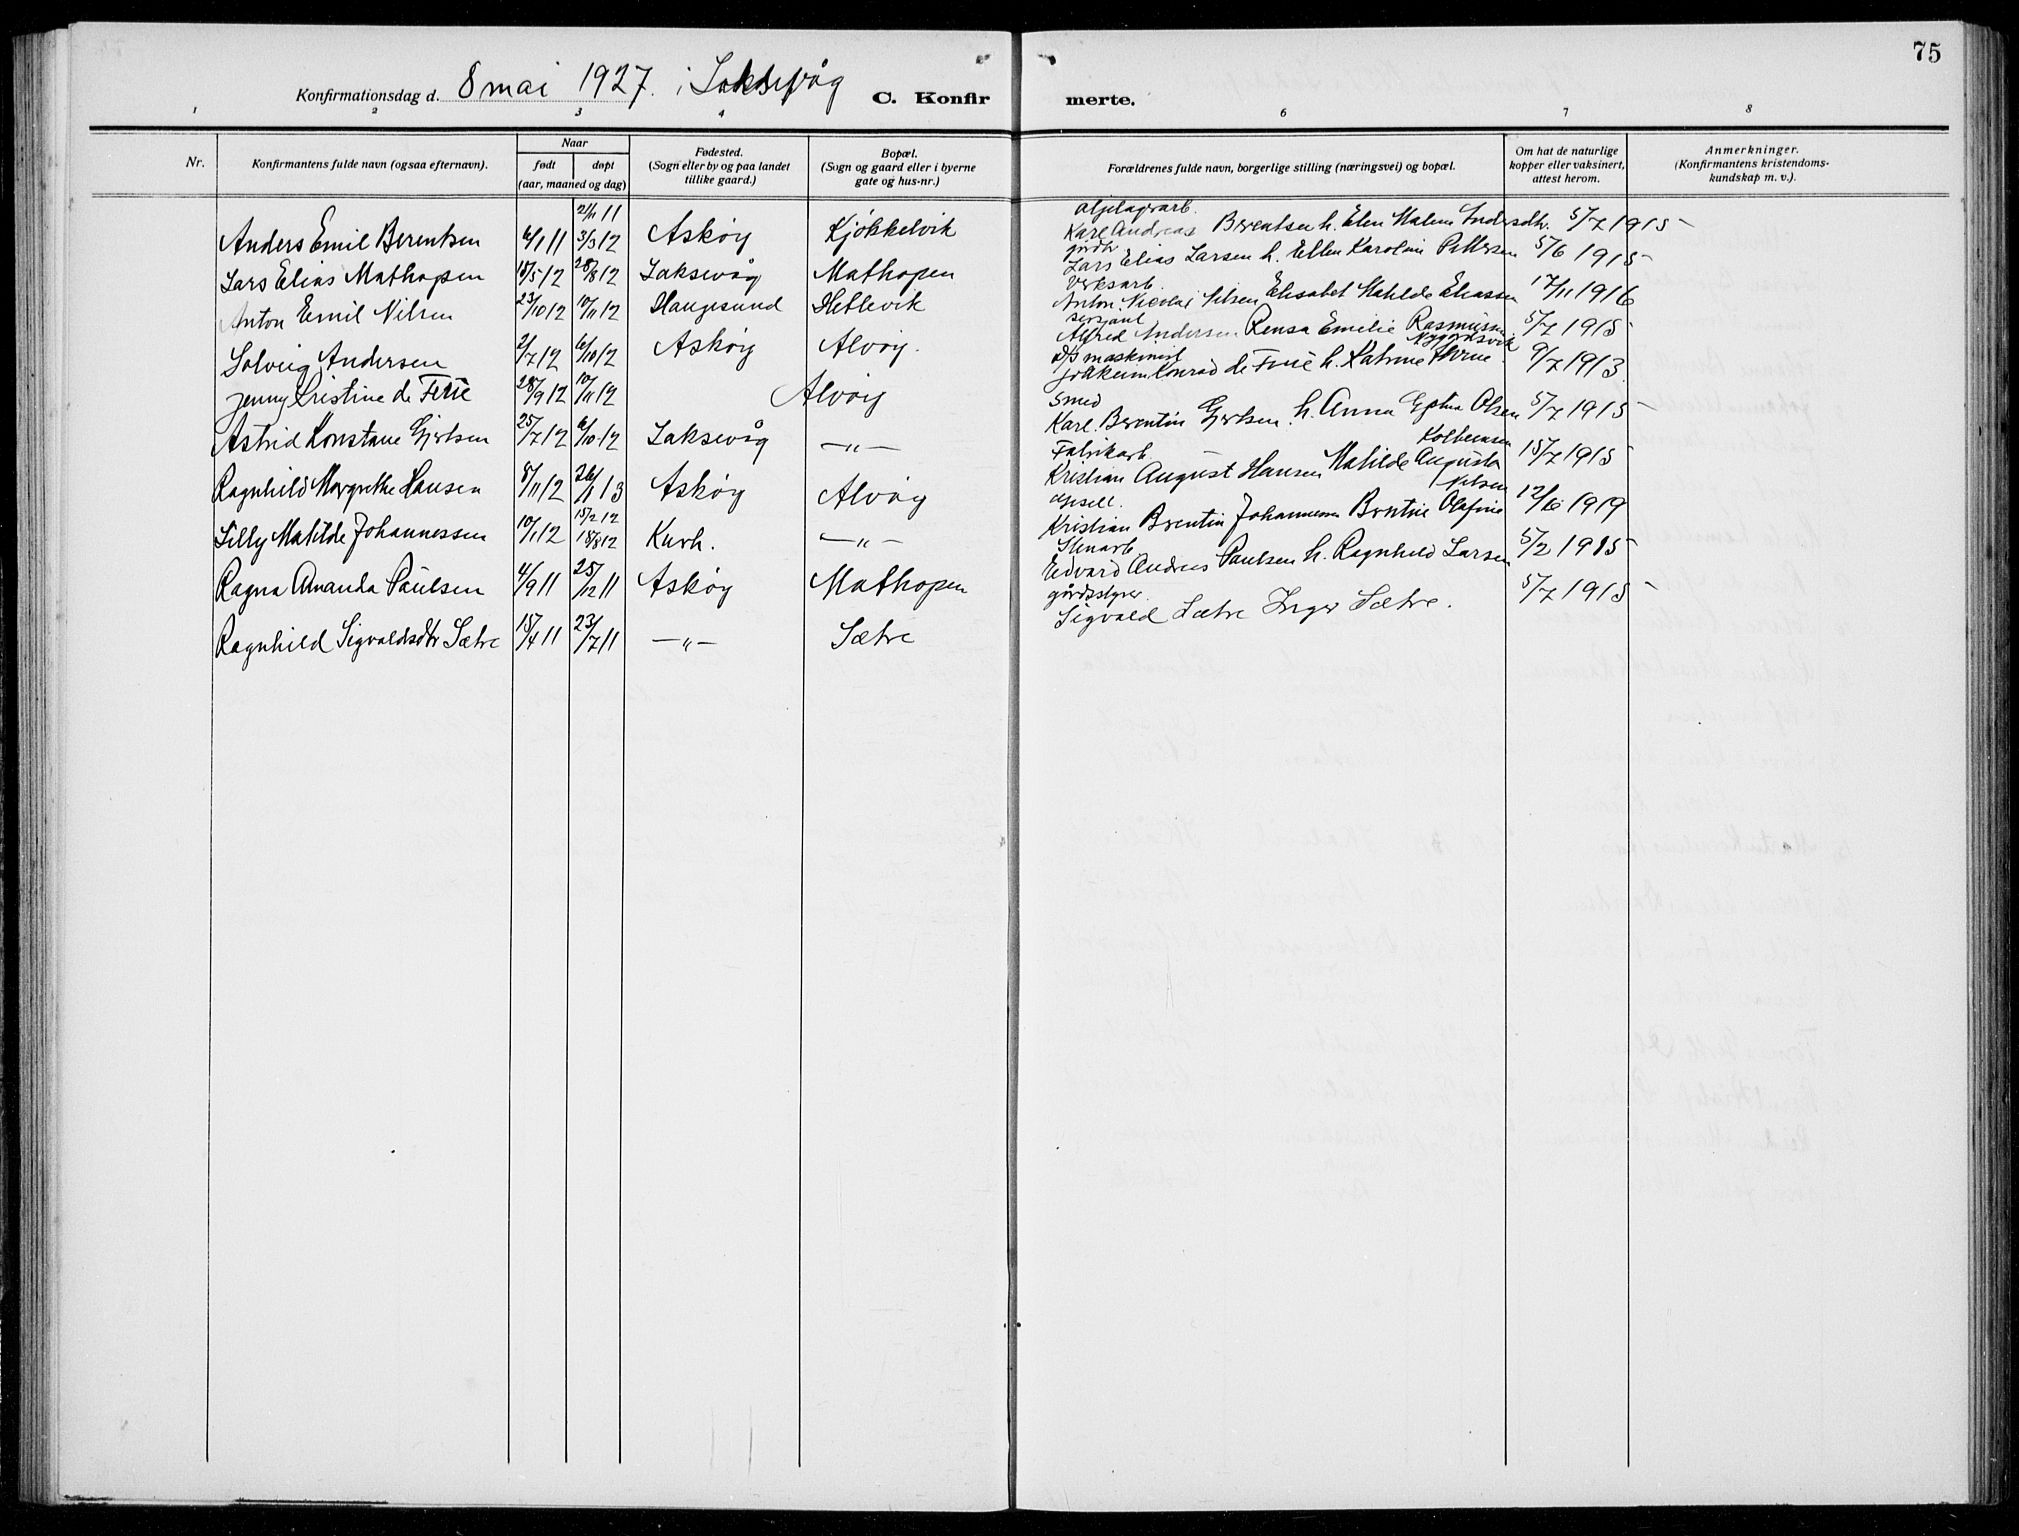 75
Konfirmationsdag d. 8 mai 1927. i Laksevåg C. Konfir merte.
1 2 3 4 6 7 8
Nr.
Konfirmantens fulde navn (ogsaa efternavn).
Naar
født døpt
(aar, maaned og dag)
Fødested.
(Sogn eller by og paa landet
tillike gaard.)
Bopæl.
(Sogn og gaard eller i byerne
gate og hus-nr.)
Forældrenes fulde navn, borgerlige stilling (næringsvei) og bopæl.
Om hat de naturlige
kopper eller vaksinert,
attest herom.
Anmerkninger.
(Konfirmantens kristendoms-
kundskap m. v.).
Anders Emil Berentsen 6/1 11 3/3 12 Askøy Kjøkkelvik
Karl Andreas Berentsen h. Elen Malene 5/7 1915
Lars Elias Mathopen 15/5 12 25/8 12 Laksevåg Mathopen
Lars Elias Larsen h. Ellen Karoline Pettersen 5/6 1915
Verksarb.
Anton Emil Nilsen 23/10 12 10/11 12 Haugesund Hetlevik
Anton Nicolai Nilsen Elisabet Matilde Eliassen 17/11 1916
serjant
Solveig Andersen 2/7 12 6/10 12 Askøy Alvøy.
Alfred Andersen Rensa Emilie Rasmussen 5/7 1915
D/S maskinist
Jenny Kristine de Ferie 28/9 12 10/11 12 Alvøy
Joakeim Konrad de Ferie h. Katrine 9/7 1913
Smed
Astrid Konstane Gjertsen 25/7 12 6/10 12 Laksevåg —„—
Karl Berentin Gjertsen h. Anna Olsen 5/7 1915
Fabrikarb. Kolbeinsen
Ragnhild Margrethe Hansen 8/11 12 26/1 13 Askøy Alvøy
Kristian August Hansen Matilde Augusta 15/7 1915
Nilsen
Lilly Matilde Johannessen 10/1 12 18/8 12 Kvrh. —„—
Kristian Berentin Johannessen Berntine Olafine 12/6 1919
Stenarb
Ragna Amanda Paulsen 4/9 11 25/12 11 Askøy Mathopen
Edvard Andreas Paulsen h. Ragnhild Larsen 5/2 1915
gårdsstyrer.
Ragnhild Sigvaldsdtr Sætre 15/4 11 23/7 11 —„— Sætre
Sigvald Sætre Inger Sætre. 5/7 1915